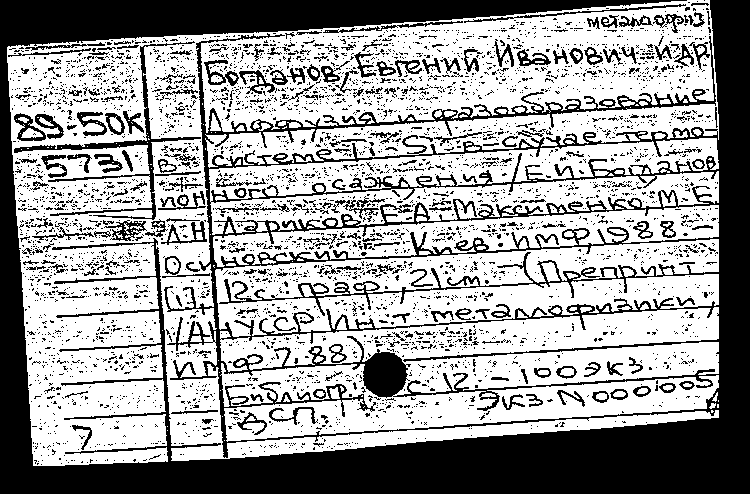 металлофиз
Богданов, Евгений Иванович и др.
89-50К
Диффузия и фазообразование
5731
в системе Ti-Si в случае термо-
ионного осаждения./Е.И.Богданов,
Л.Н Лариков, Е.А.Максименко, М.Б.
Осиновский. - Киев: ИМФ, 1988. -
[1], 12с.: граф., 21см. - (Препринт
/АН УССР, Ин-т металлофизики;
ИМФ 7.88)
Библиогр. с. 12. - 100 экз.
ДСП. Экз. N 000005
7